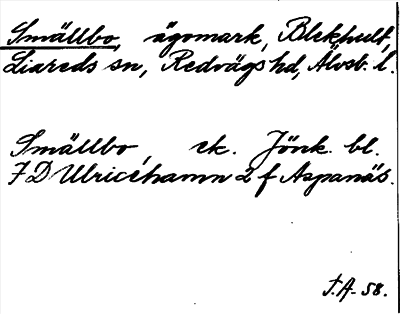 Smällbo, ägomark, Blekhult,
Liareds sn, Redvägs hd, Älvsb. l.
Smällbo, ek. Jönk. bl.
7 D Ulricehamn 2 f Aspanäs.
T.A. 58.